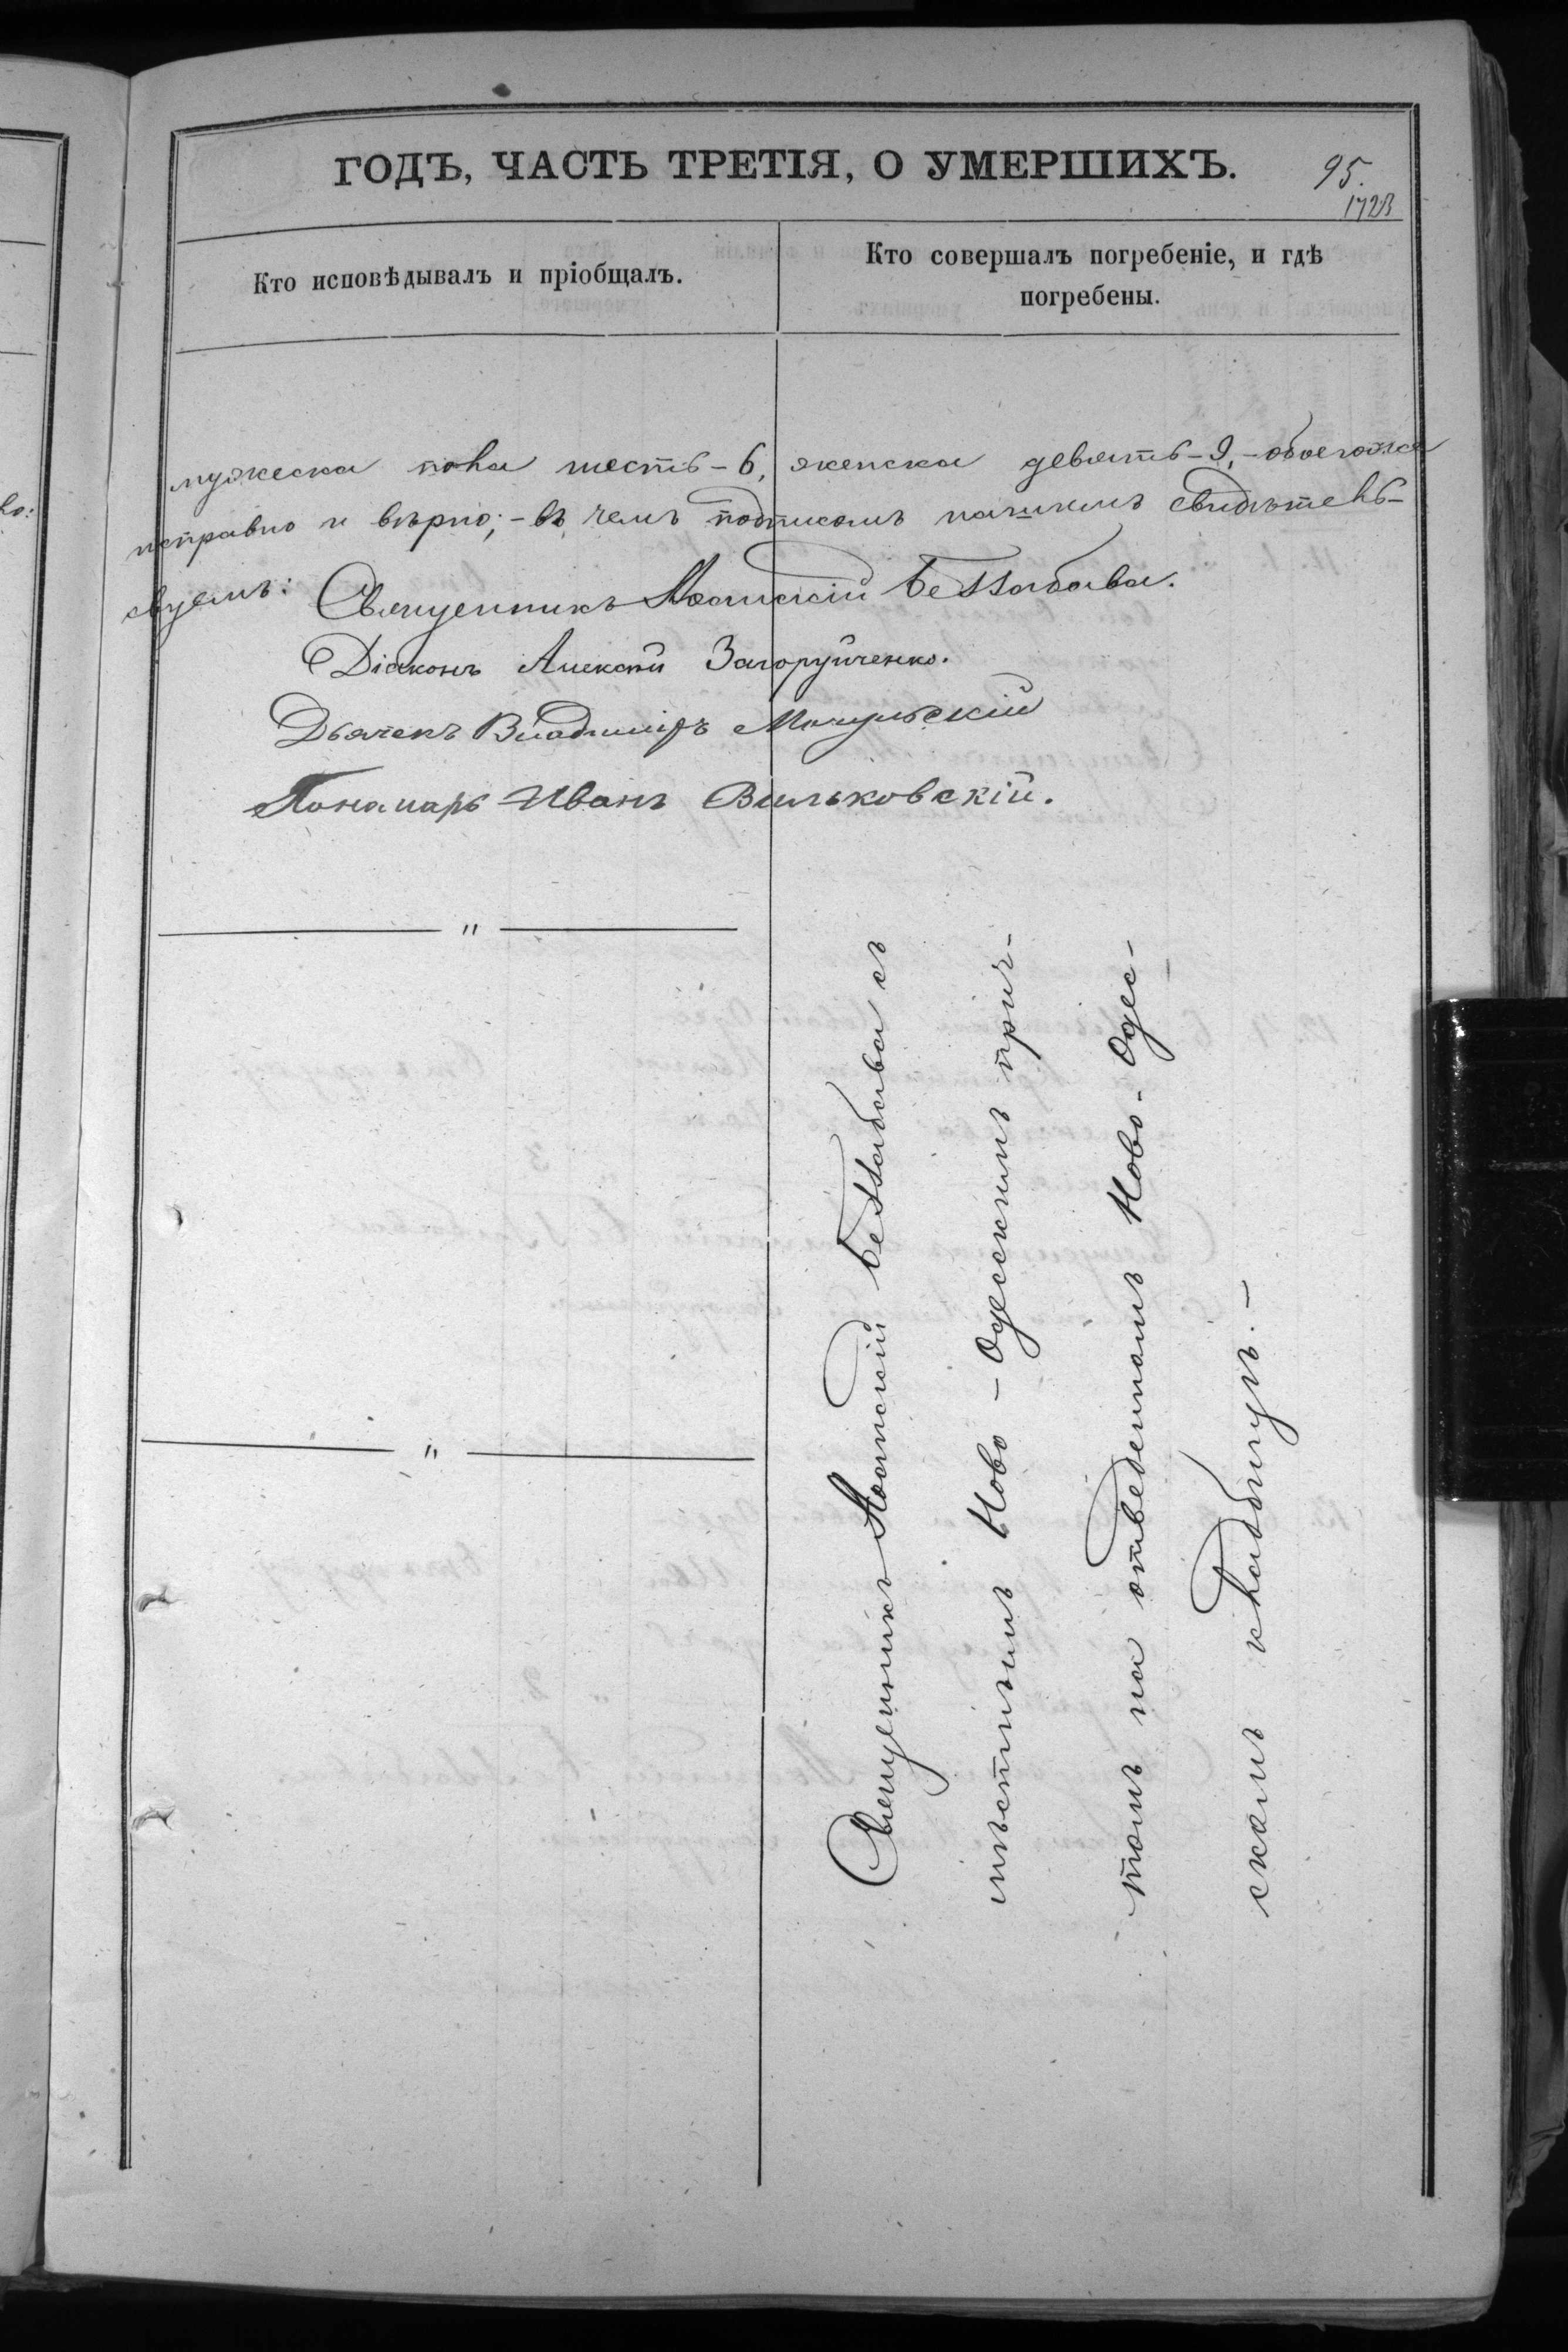 ГОДЪ, ЧАСТЬ ТРЕТІЯ, О УМЕРШИХЪ.
95.
1723
Кто исповѣдывалъ и пріобщалъ.
Кто совершалъ погребеніе, и гдѣ
погребены.
мужеска пола шесть - 6, женска девять - 9, -
исправно и вѣрно; - въ чемъ подписомъ нашимъ свидѣтель-
ствуемъ: Священникъ Беззабава.
Діаконъ Алексѣй Загоруйченко.
Дьячекъ Владиміръ Мачульскій
Понамарь Иванъ Вильковскій.
"
"
Священникъ Беззабава съ
мѣстнымъ Ново - Одесскимъ прич-
томъ на отведенномъ Ново - Одес-
скомъ кладбищѣ. -